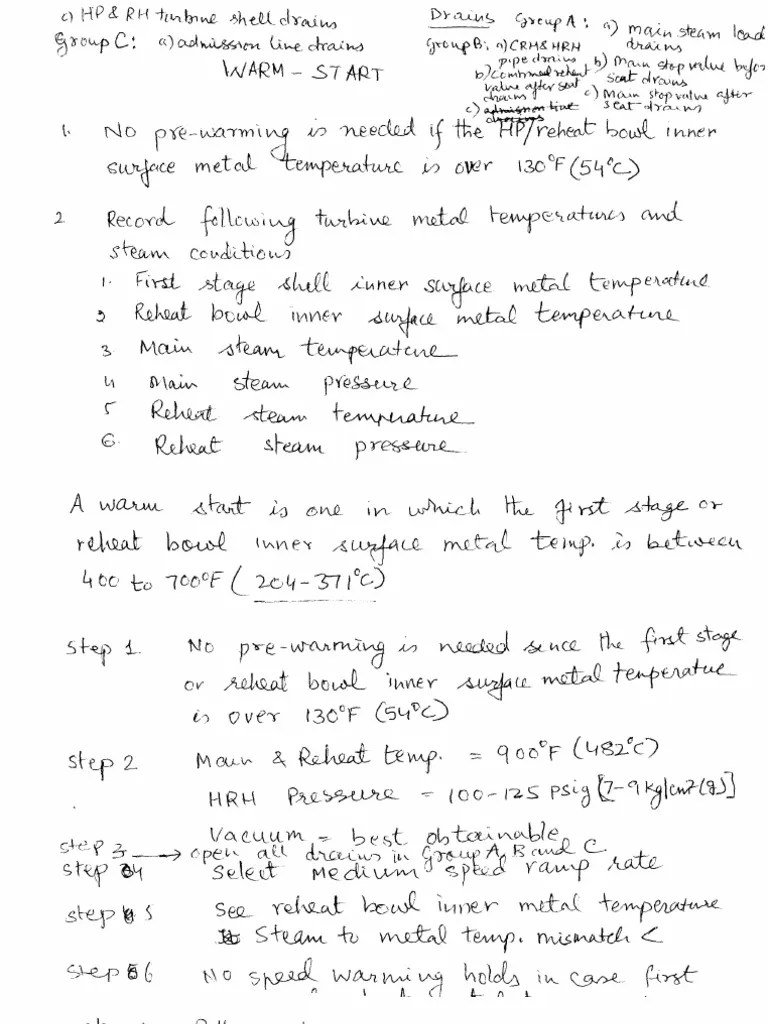 c) HP & RH turbine shell drains
Group C: a) admission line drains
WARM - START
Drains Group A: a) main steam lead drains
b) Main stop valve before seat drains
c) Main stop valve after seat drains
Group B: a) CRH & HRH pipe drains
b) Combined reheat valve after seat drains
c) admission line
1. No pre-warming is needed if the HP/reheat bowl inner
surface metal temperature is over 130°F (54°C)
2 Record following turbine metal temperatures and
steam conditions
1. First stage shell inner surface metal temperature
2 Reheat bowl inner surface metal temperature
3. Main steam temperature
4 Main steam pressure
5 Reheat steam temperature
6. Reheat steam pressure
A warm start is one in which the first stage or
reheat bowl inner surface metal temp. is between
400 to 700°F (204-371°C)
Step 1. No pre-warming is needed since the first stage
or reheat bowl inner surface metal temperature
is over 130°F (54°C)
Step 2 Main & Reheat temp. = 900°F (482°C)
HRH Pressure = 100-125 psig [7-9 kg/cm2(g)]
Vacuum = best obtainable
Step 3 → open all drains in Group A, B and C
Step 4 Select Medium speed ramp rate
Step 5 See reheat bowl inner metal temperature
Steam to metal temp. mismatch <
Step 6 No speed warming holds in case first